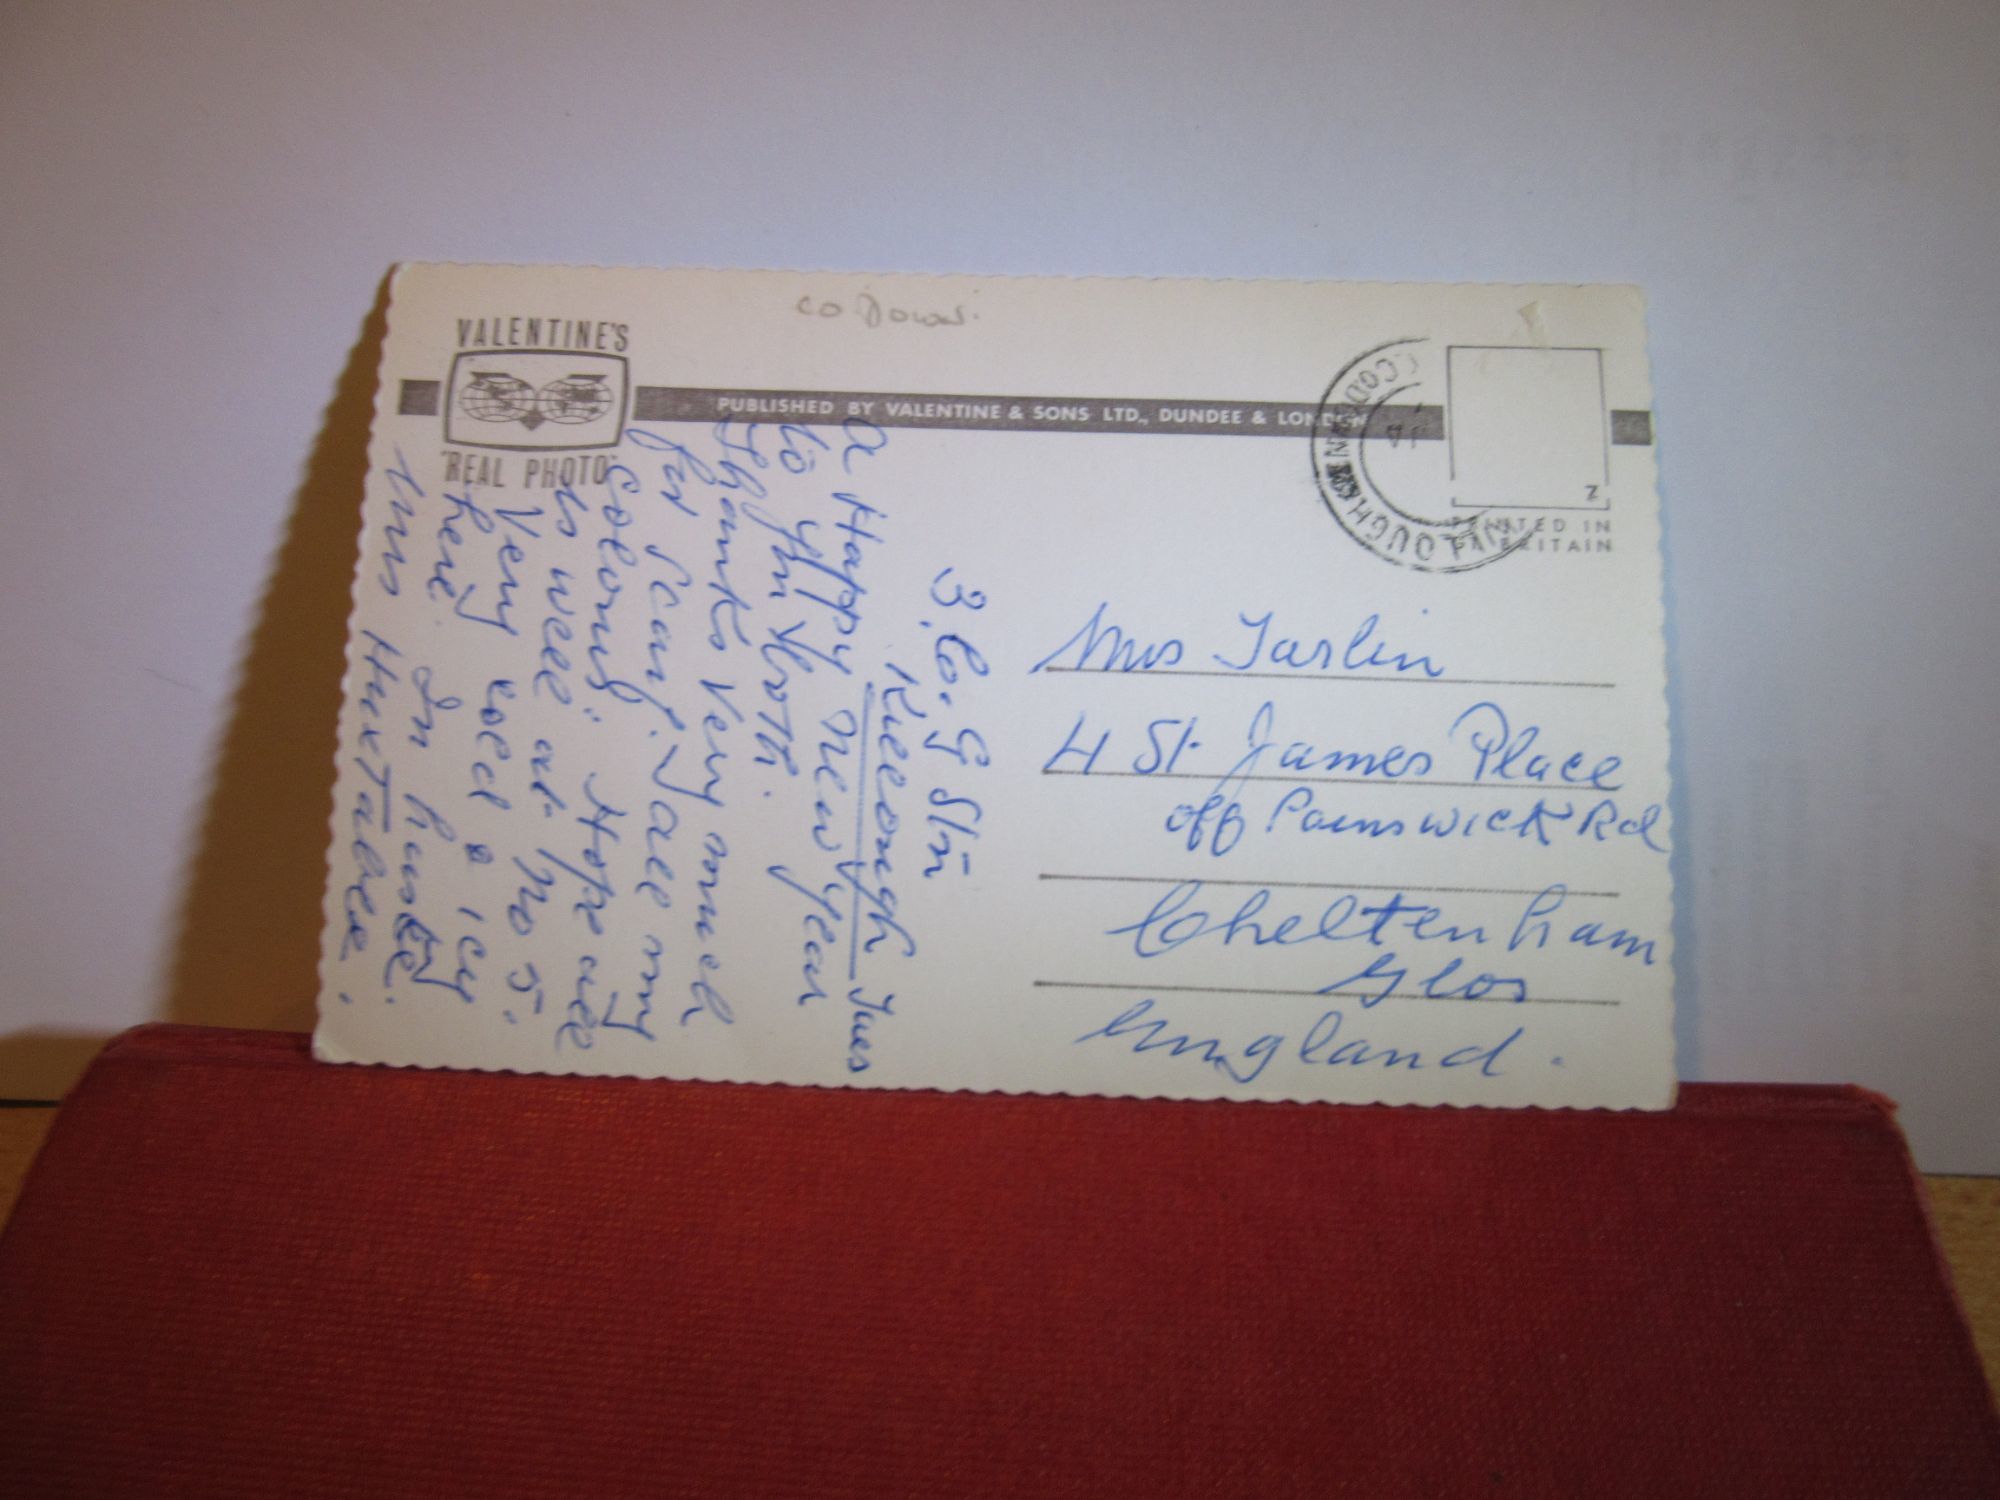 co Down.
VALENTINE'S
"REAL PHOTO"
PUBLISHED BY VALENTINE & SONS LTD., DUNDEE & LONDON
Z
PRINTED IN
BRITAIN
3. C. G Stn
Killough Tues
A Happy New Year
to you both.
Thanks very much
for scarf. all my
Colours. Hope all
is well at No 5.
Very cold & icy
here. In haste.
Mrs Huxtable.
Mrs Tarlin
4 St James Place
off Painswick Rd
Cheltenham
Glos
England.